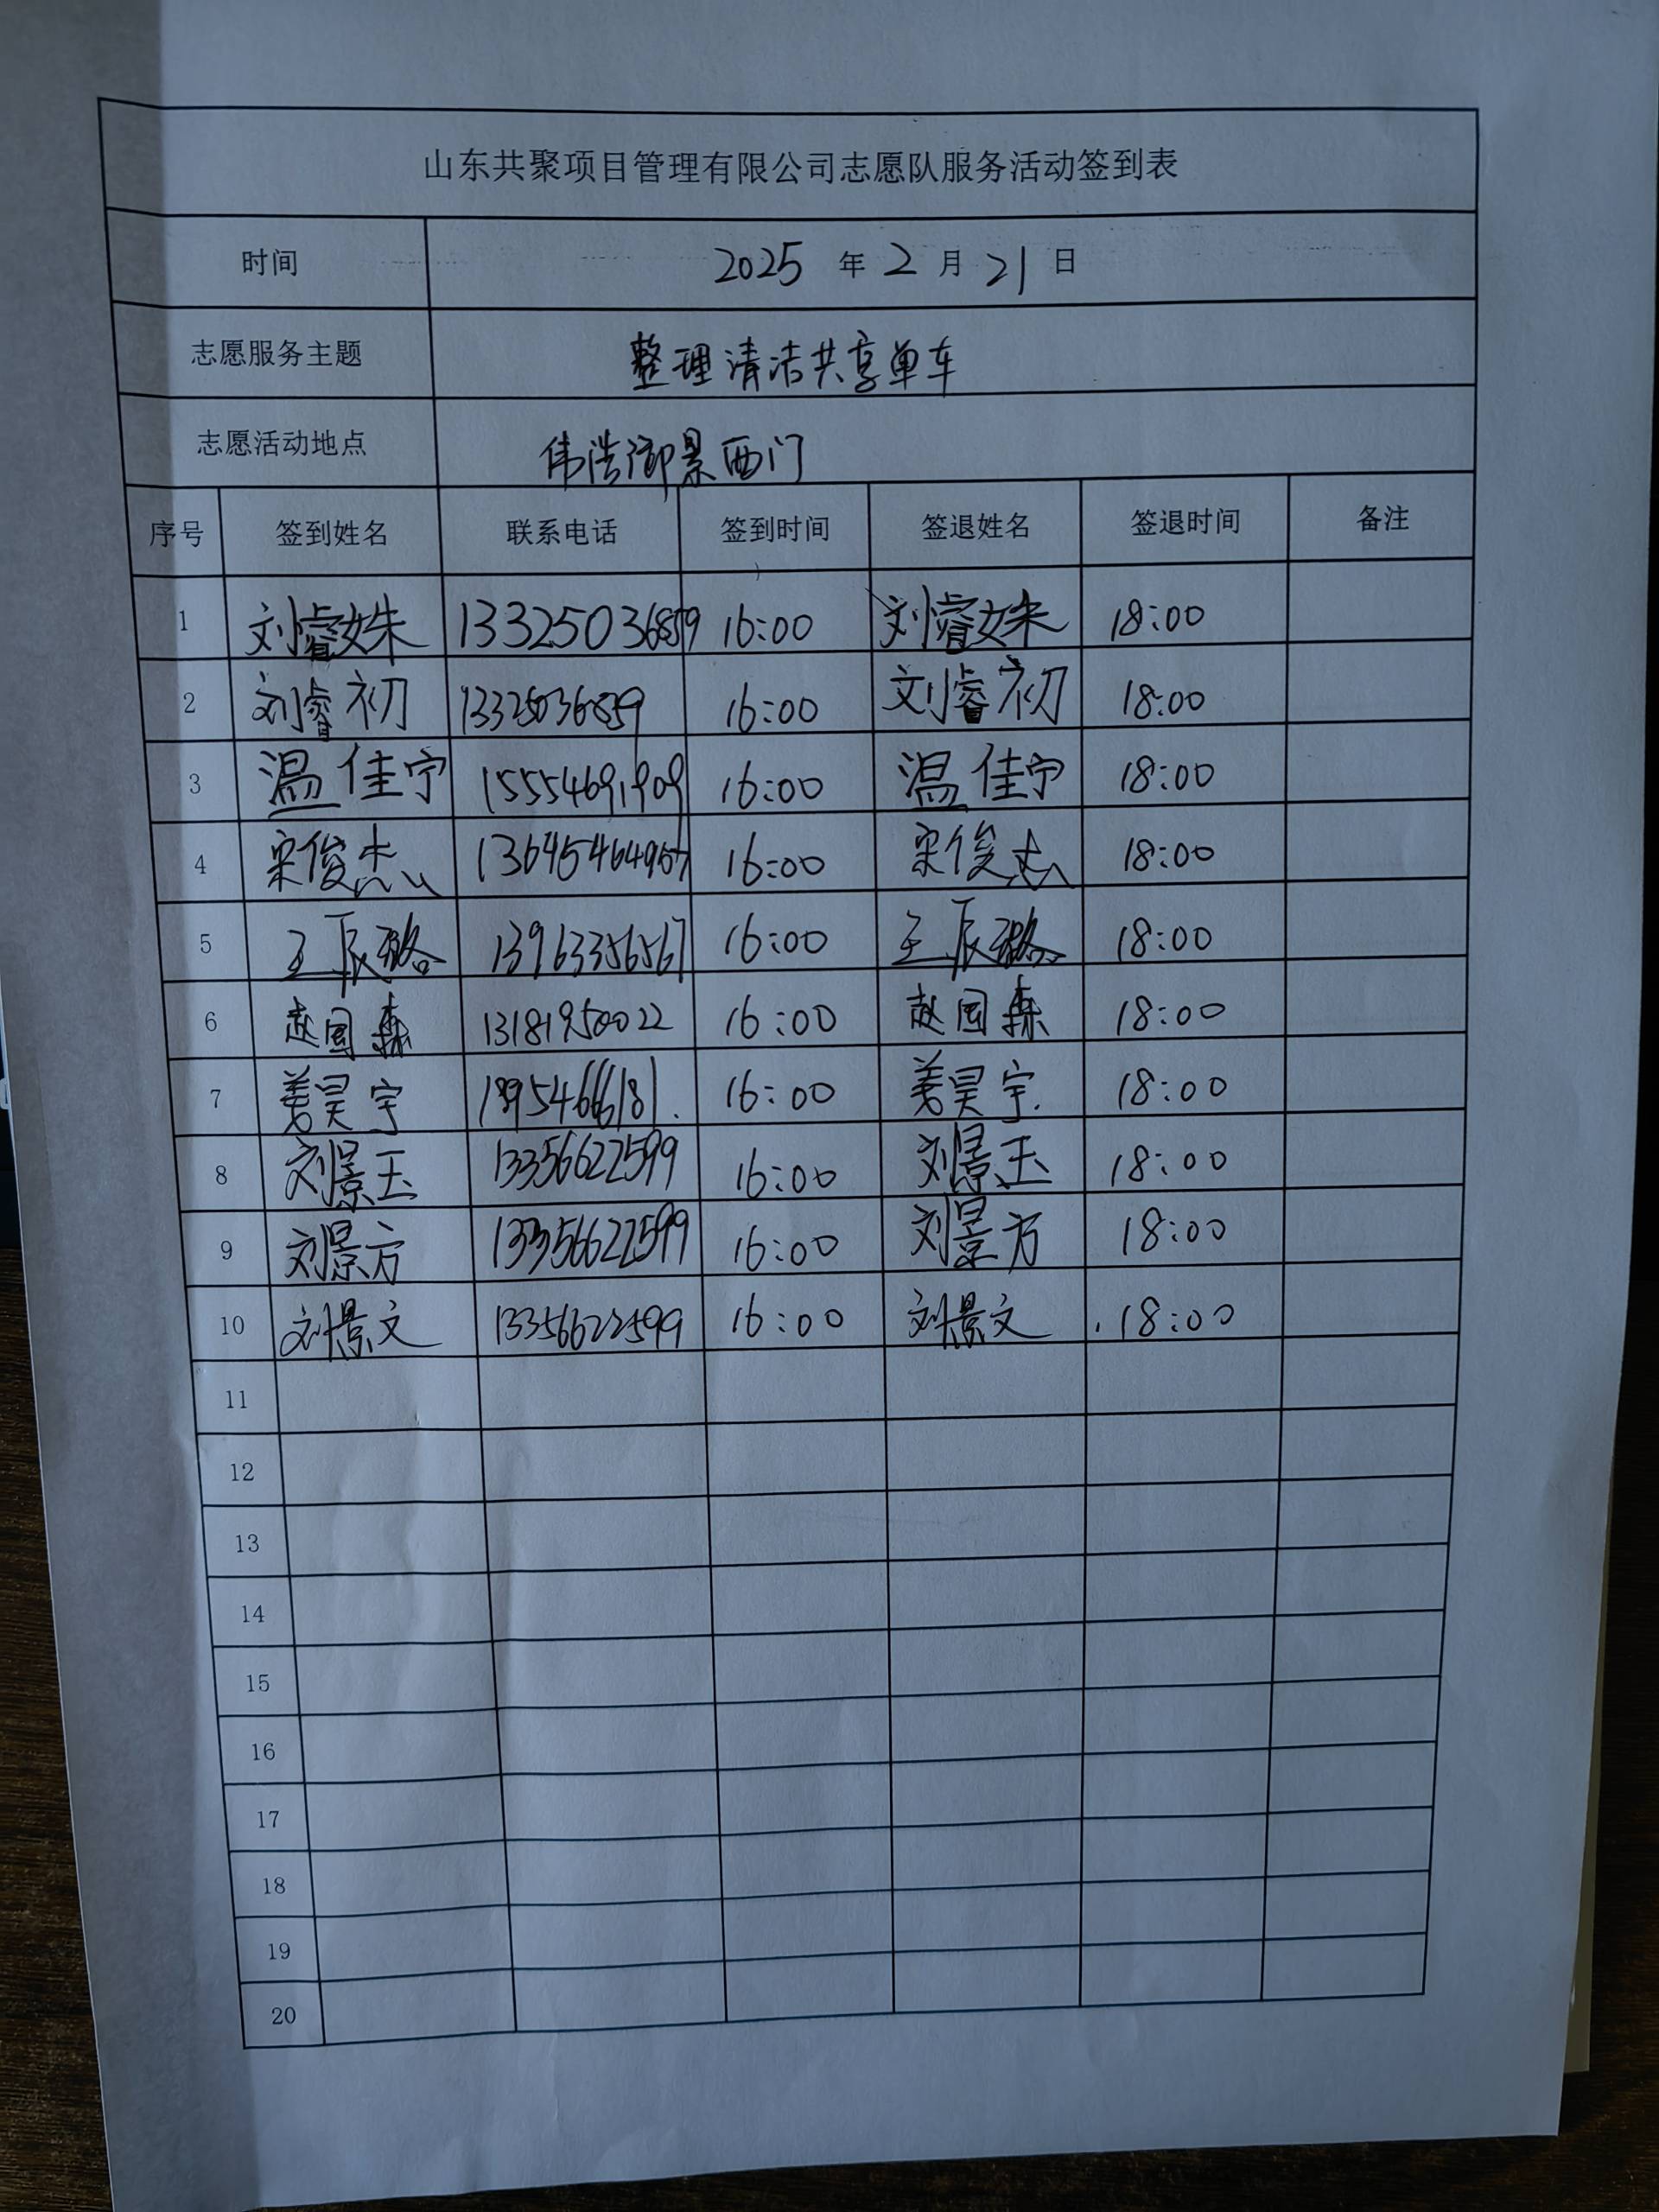 山东共聚项目管理有限公司志愿队服务活动签到表
时间 2025 年 2 月 21 日
志愿服务主题 整理清洁共享单车
志愿活动地点 伟浩御景西门
序号 签到姓名 联系电话 签到时间 签退姓名 签退时间 备注
1 刘睿姝 13325036859 16:00 刘睿姝 18:00
2 刘睿初 13325036859 16:00 刘睿初 18:00
3 温佳宁 15554691909 16:00 温佳宁 18:00
4 宋俊杰 13645464957 16:00 宋俊杰 18:00
5 王辰璐 13963356567 16:00 王辰璐 18:00
6 赵国森 13181950022 16:00 赵国森 18:00
7 姜昊宇 18954666181 16:00 姜昊宇 18:00
8 刘景玉 13356622599 16:00 刘景玉 18:00
9 刘景方 13356622599 16:00 刘景方 18:00
10 刘景文 13356622599 16:00 刘景文 18:00
11
12
13
14
15
16
17
18
19
20